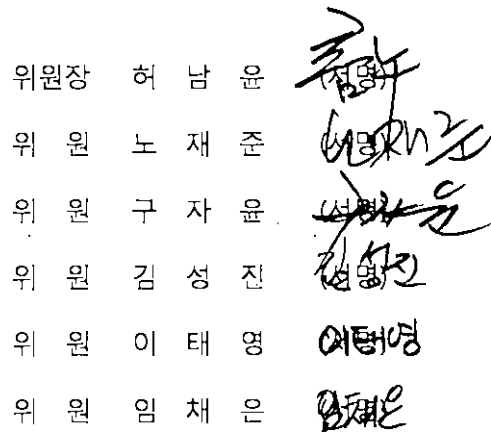 위원장 허 남 윤 (서명)
위 원 노 재 준 (서명) 노재준
위 원 구 자 윤 (서명)
위 원 김 성 진 (서명) 김성진
위 원 이 태 영 (서명) 이태영
위 원 임 채 은 (서명) 임채은